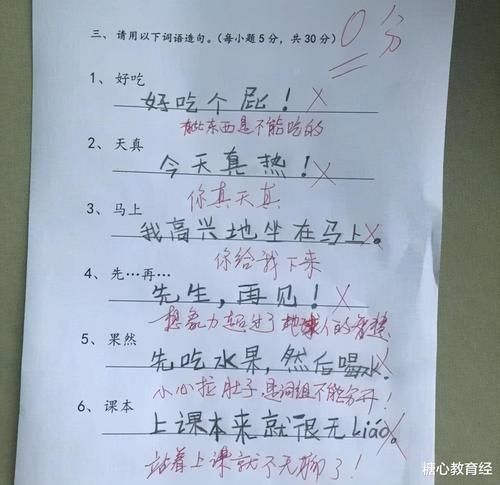 三、请用以下词语造句。(每小题5分，共30分)
0分
1、好吃
好吃个屁！
有些东西是不能吃的
2、天真
今天真热！
你真天真
3、马上
我高兴地坐在马上。
你给我下来
4、先……再……
先生，再见！
想象力超过了地球人的智慧
5、果然
先吃水果，然后喝水。
小心拉肚子，是词组不能分开！
6、课本
上课本来就很无liáo。
站着上课就不无聊了！
糖心教育经